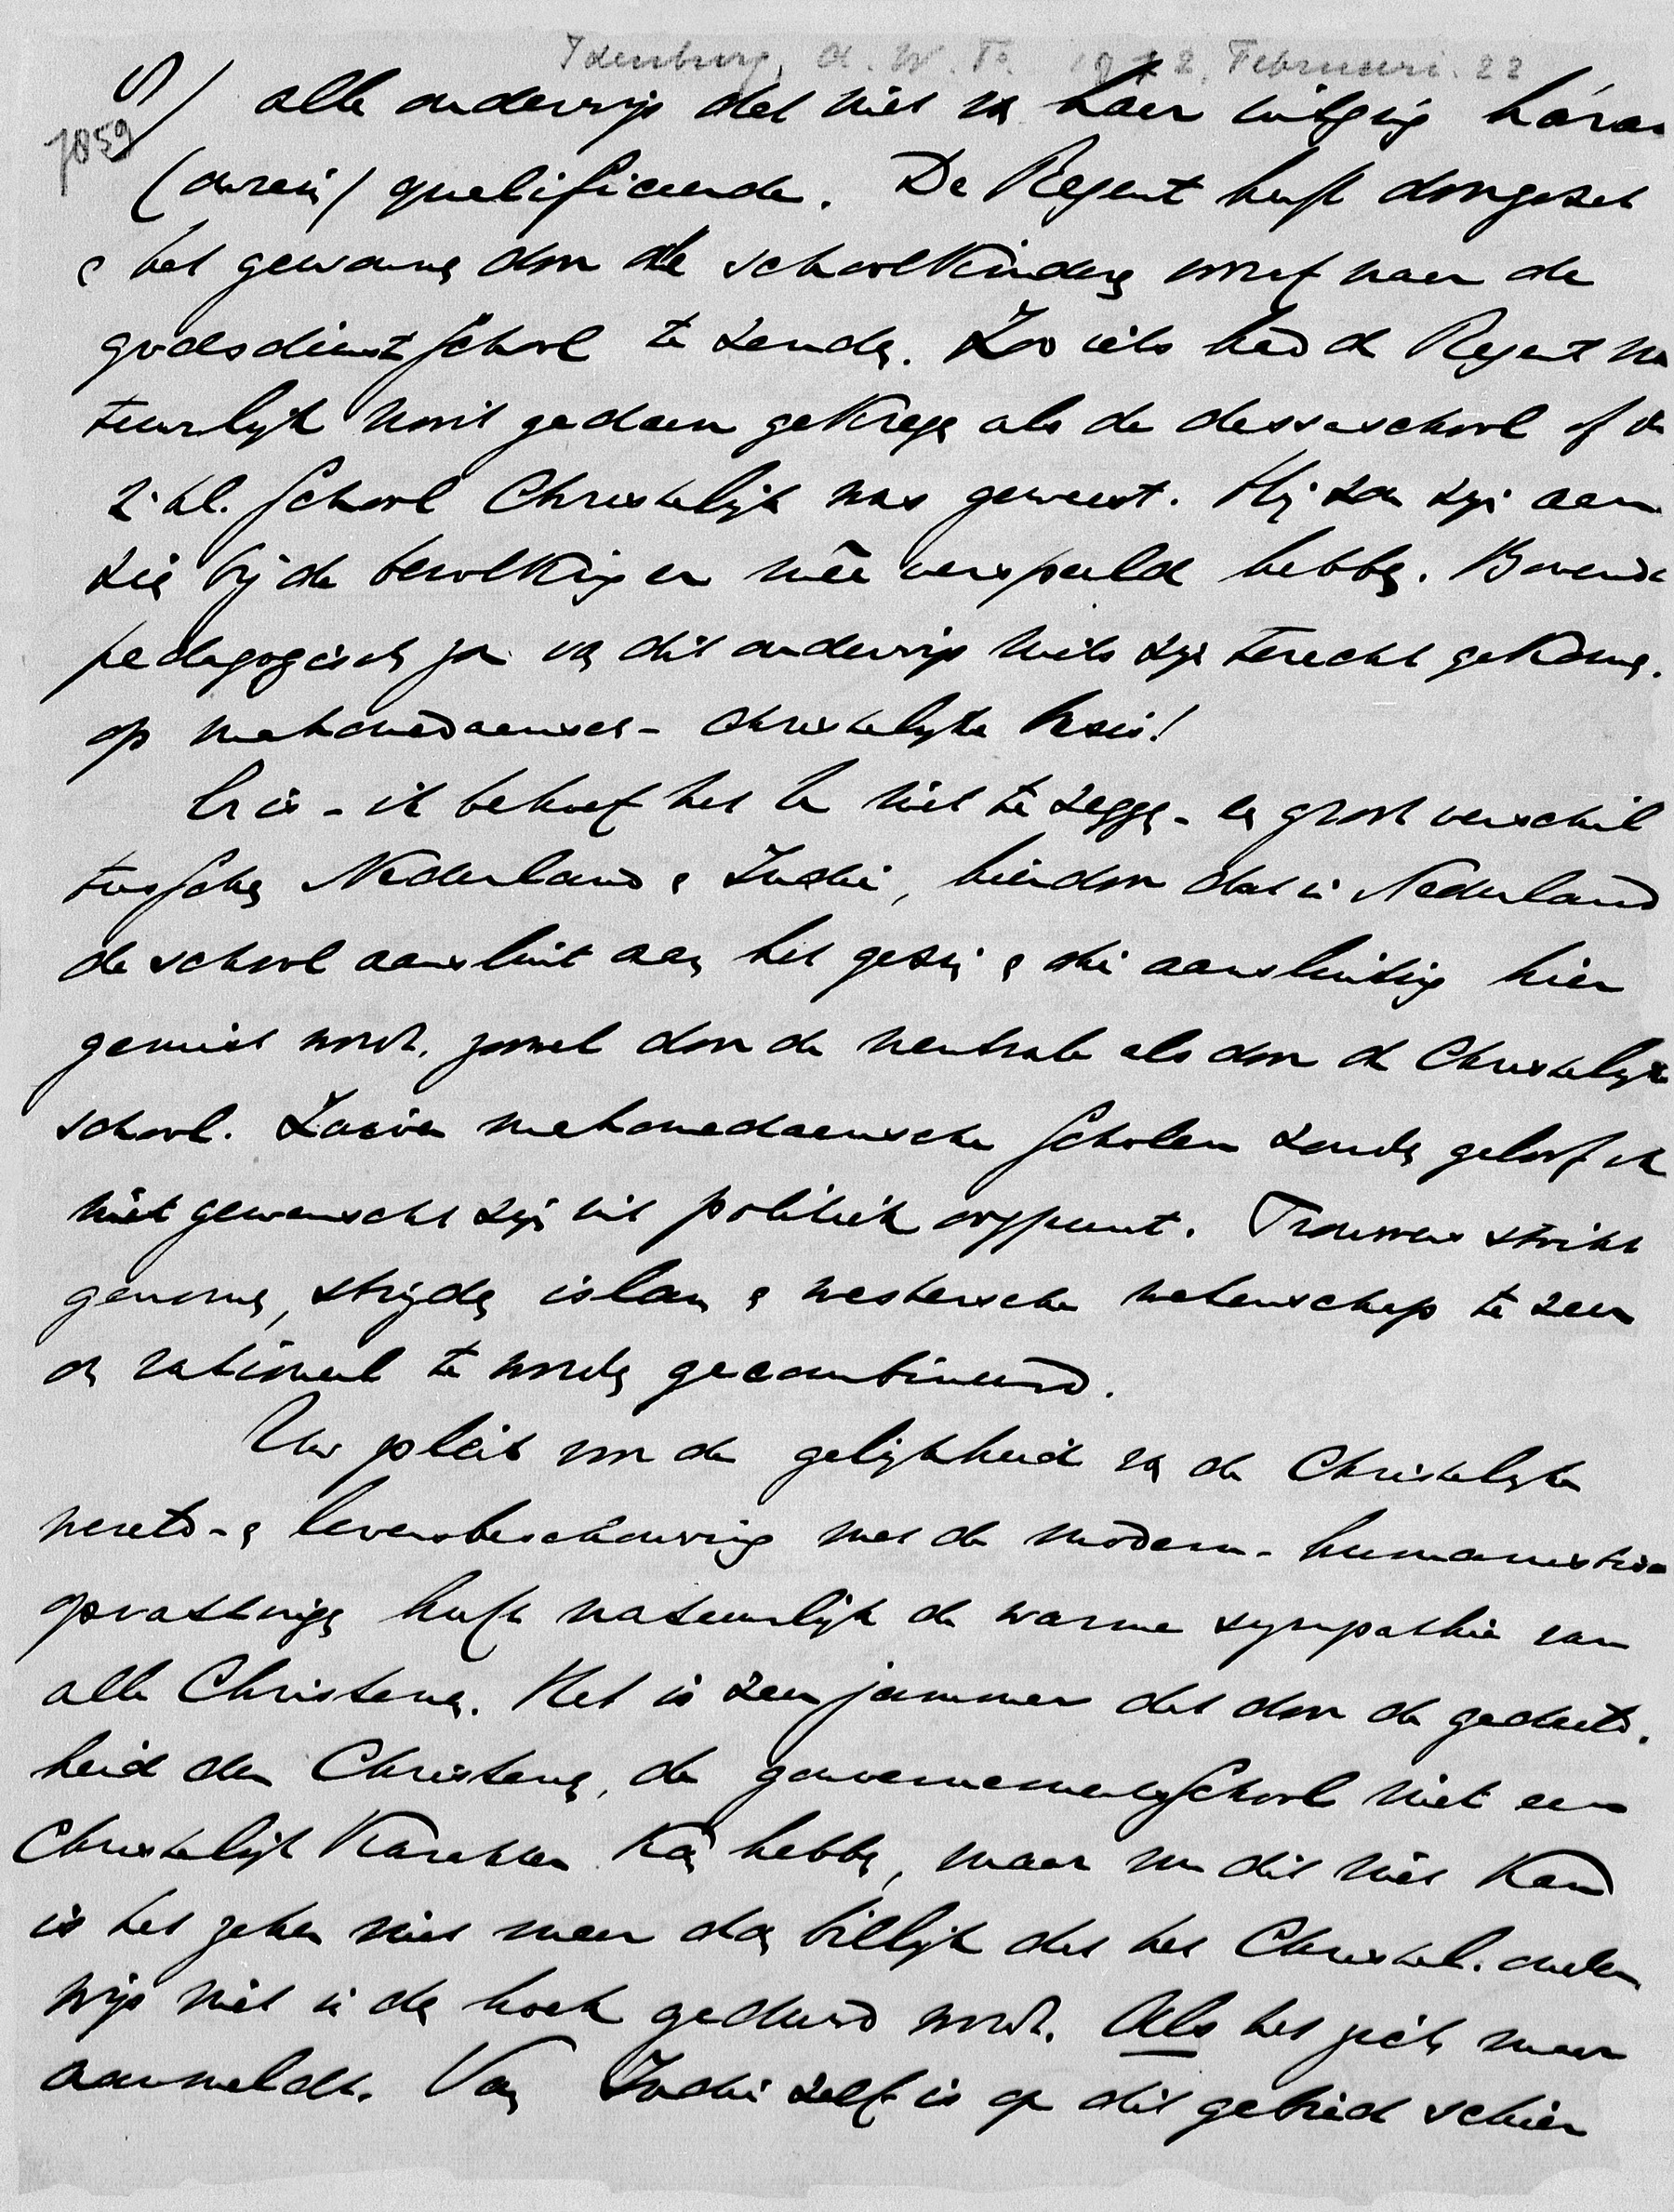 Idenburg, A. W. F. 1912, Februari 22
5/ alle onderwijs dat niet v. haar uitging háram
7859
(onrein) qualificeerde. De Regent heeft doorgezet
& het gewonnen door de schoolkinderen vooraf naar de
godsdienstschool te zenden. Zoo iets had de Regent na
tuurlijk nooit gedaan gekregen als de dessaschool of de
2e kl. school Christelijk was geweest. Hij zou zijn aan
zien bij de bevolking er mêe verspeeld hebben. Bovendien
pedagogisch zou van dit onderwijs niets zijn terecht gekomen.
op mahomedaansch - christelijke basis!
Er is - ik behoef het U niet te zeggen - een groot verschil
tusschen Nederland & Indië, hierdoor dat in Nederland
de school aansluit aan het gezin & die aansluiting hier
gemist wordt, zoowel door de neutrale als door de Christelijke
school. Zuiver mahomedaansche scholen zouden geloof ik
niet gewenscht zijn uit politiek oogpunt. Trouwens strikt
genomen, strijden islam & westersche wetenschap te zeer
om rationeel te worden gecombineerd.
Uw pleit voor de gelijkheid van de Christelijke
wereld- & levensbeschouwing met de modern-humanistische
opvattingen heeft natuurlijk de warme sympathie van
alle Christenen. Het is zeer jammer dat door de gedeeld-
heid der Christenen, de gouvernementsschool niet een
Christelijk karakter kan hebben, maar nu dit niet kan
is het zeker niet meer dan billijk dat het Christel. onder
wijs niet in den hoek geduwd wordt. Als het zich maar
aanmeldt. Van Indië zelf is op dit gebied schier